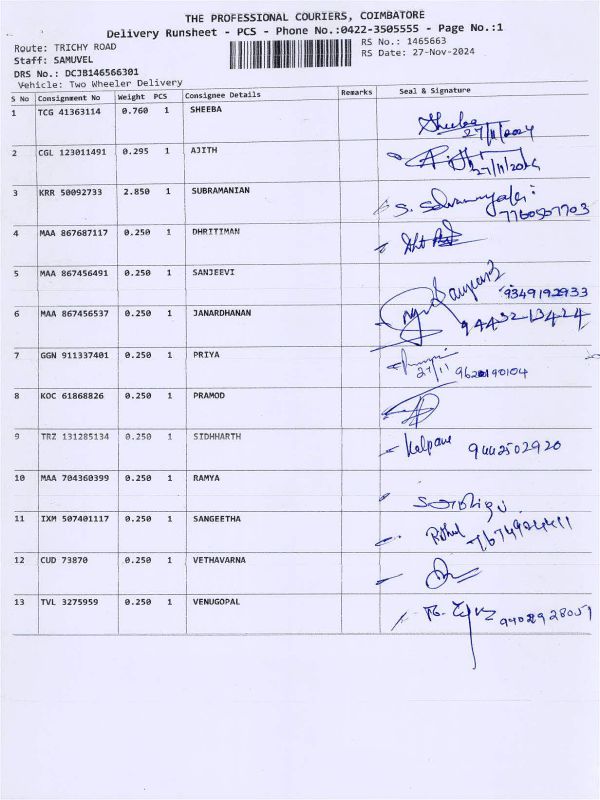 THE PROFESSIONAL COURIERS, COIMBATORE
Delivery Runsheet - PCS - Phone No.:0422-3505555 - Page No.:1
Route: TRICHY ROAD
RS No.: 1465663
Staff: SAMUVEL
RS Date: 27-Nov-2024
DRS No.: DCJB146566301
Vehicle: Two Wheeler Delivery
S No Consignment No Weight PCS Consignee Details Remarks Seal & Signature
1 TCG 41363114 0.760 1 SHEEBA Sheeba
27/11/2024
2 CGL 123011491 0.295 1 AJITH Ajith
27/11/2024
3 KRR 50092733 2.850 1 SUBRAMANIAN S.
7760507703
4 MAA 867687117 0.250 1 DHRITIMAN
5 MAA 867456491 0.250 1 SANJEEVI
9349192933
6 MAA 867456537 0.250 1 JANARDHANAN
9443213424
7 GGN 911337401 0.250 1 PRIYA
27/11 9620190104
8 KOC 61868826 0.250 1 PRAMOD
9 TRZ 131285134 0.250 1 SIDHHARTH Kalpana 9442502920
10 MAA 704360399 0.250 1 RAMYA
11 IXM 507401117 0.250 1 SANGEETHA
12 CUD 73870 0.250 1 VETHAVARNA
13 TVL 3275959 0.250 1 VENUGOPAL